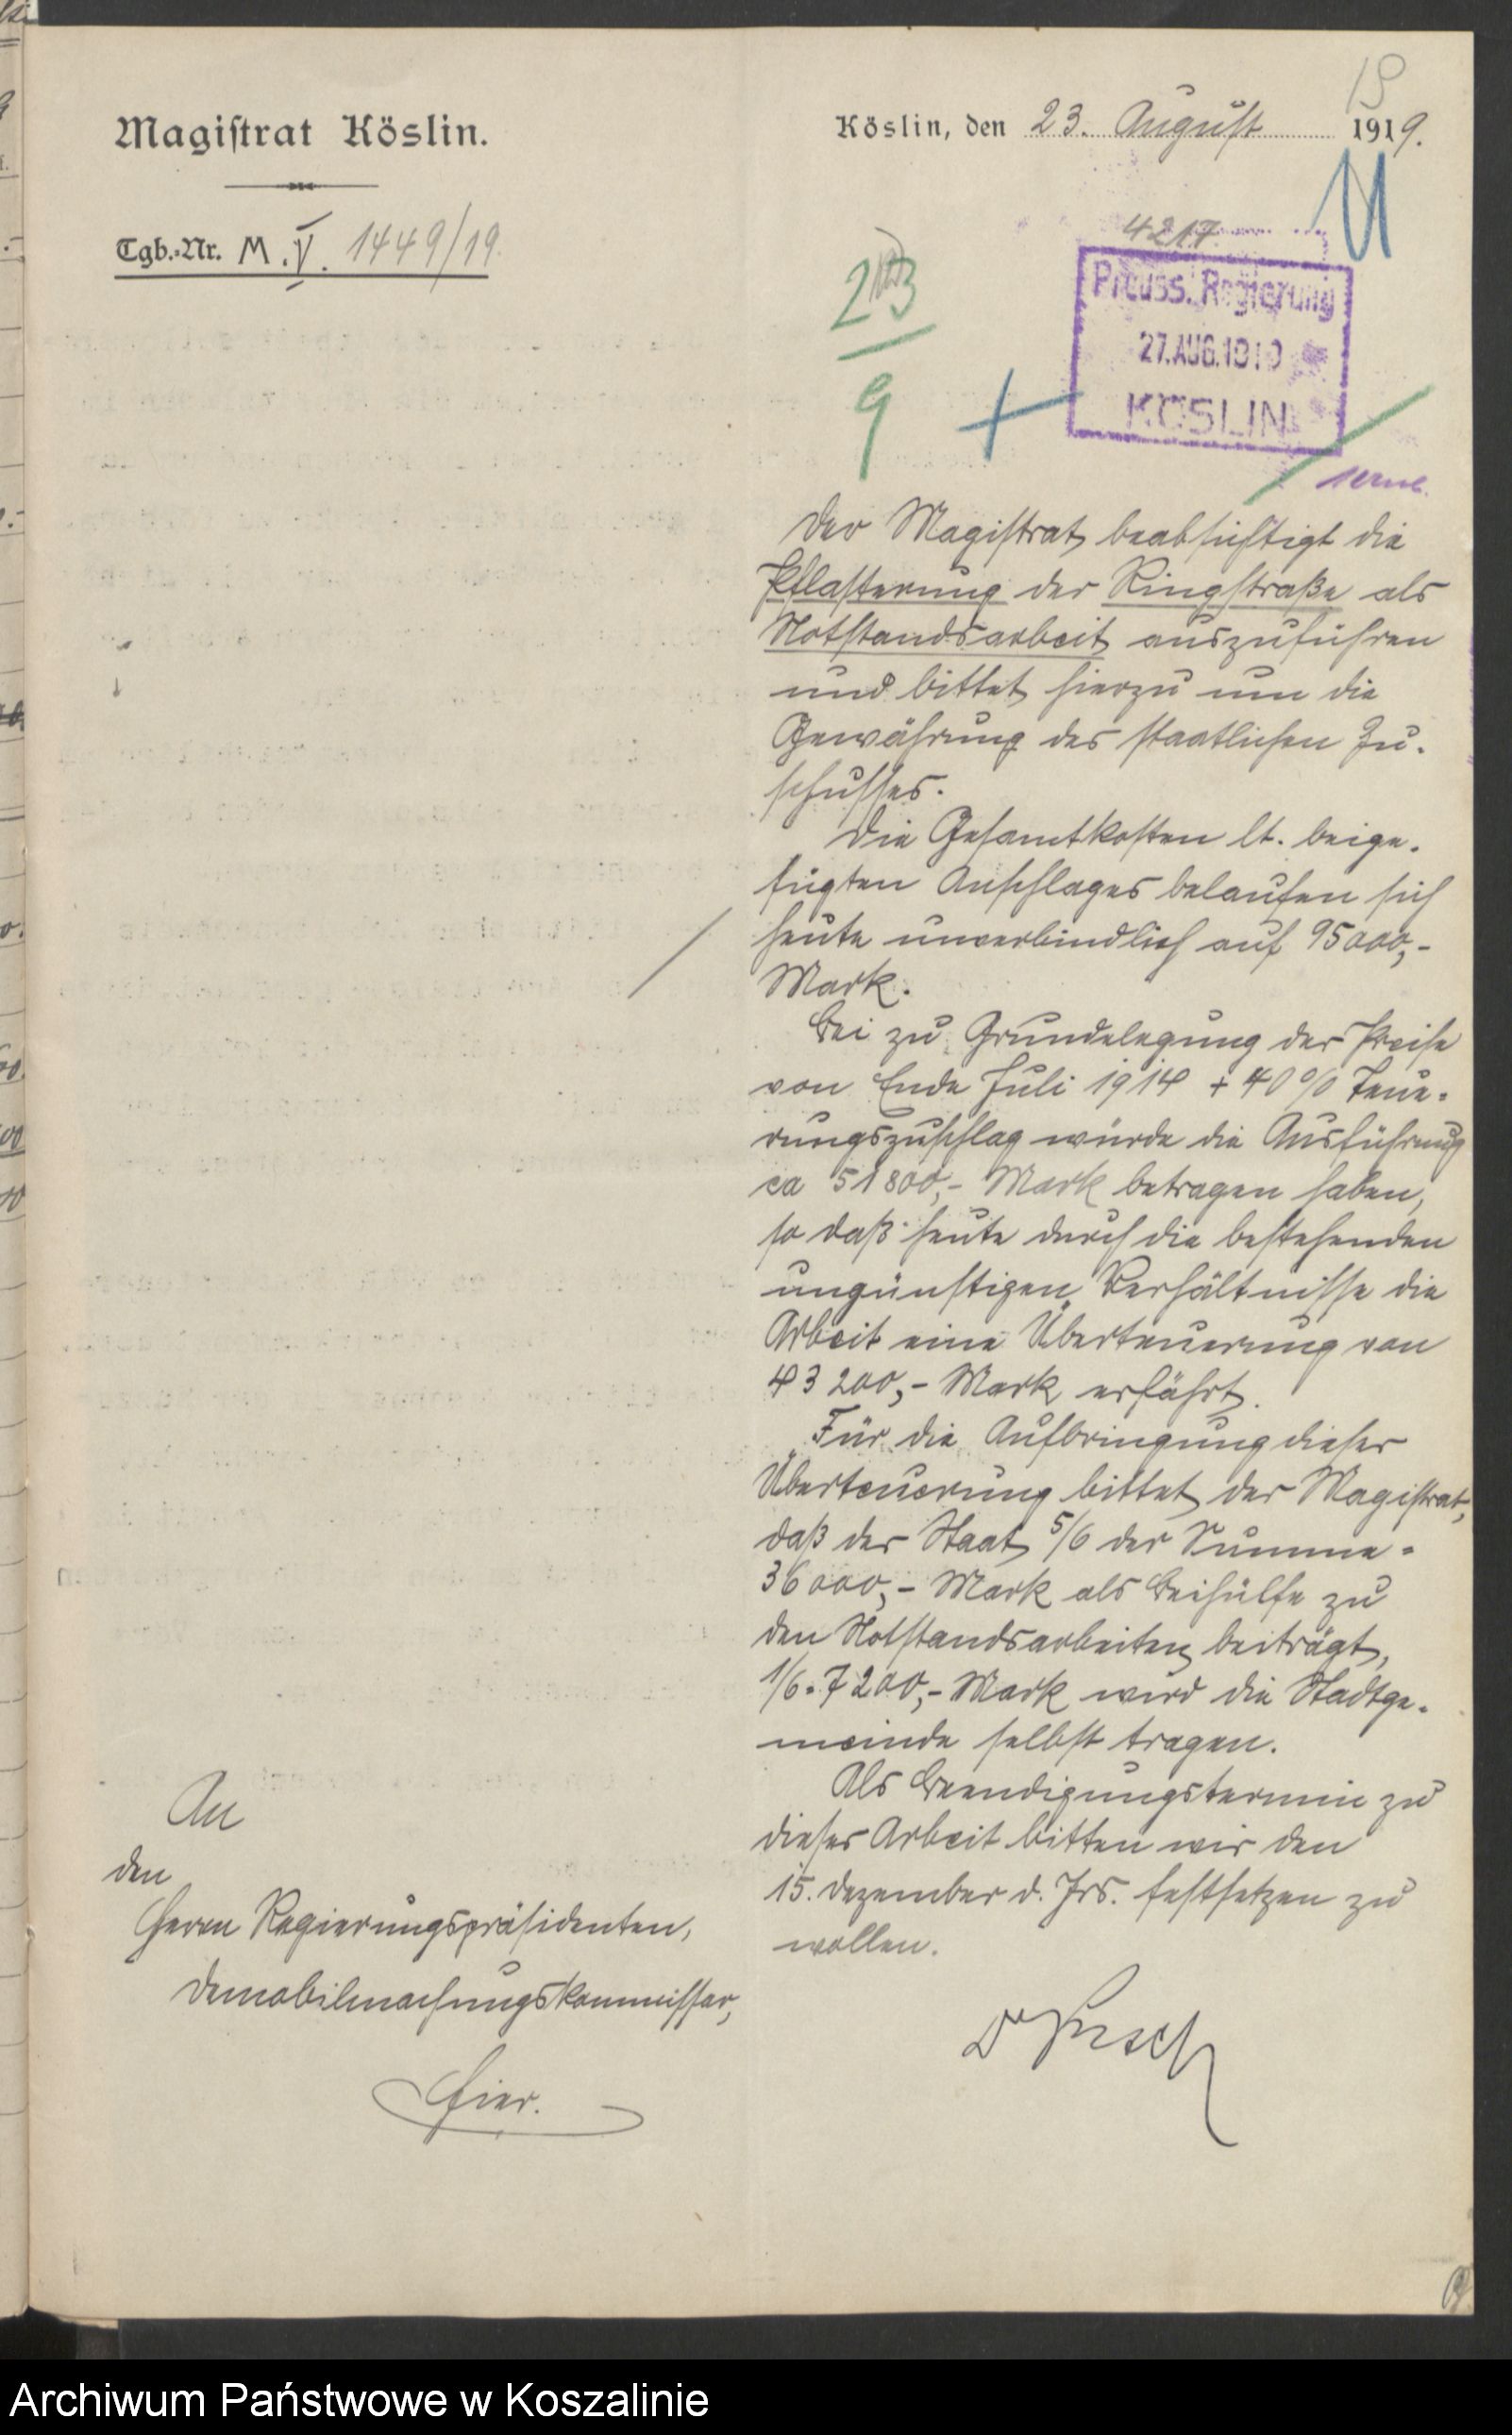 15
Magistrat Köslin.
Köslin, den 23. August 1919.
Tgb.-Nr. M. V. 1449/19.
4217
Preuss. Regierung
27. AUG. 1919
KÖSLIN
23
9
Der Magistrat beabsichtigt die
Pflasterung der Ringstraße als
Notstandsarbeit auszuführen
und bittet hierzu um die
Gewährung des staatlichen Zu-
schusses.
Die Gesamtkosten lt. beige-
fügten Anschlages belaufen sich
heute unverbindlich auf 95000,-
Mark.
Bei zu Grundelegung der Preise
von Ende Juli 1914 + 40% Teue-
rungszuschlag würde die Ausführung
ca 51800,- Mark betragen haben,
so daß heute durch die bestehenden
ungünstigen Verhältnisse die
Arbeit eine Überteuerung von
43200,- Mark erfährt.
Für die Aufbringung dieser
Überteuerung bittet der Magistrat,
daß der Staat 5/6 der Summe =
36000,- Mark als Beihülfe zu
den Notstandsarbeiten beiträgt,
1/6 = 7200,- Mark wird die Stadtge-
meinde selbst tragen.
Als Beendigungstermin zu
dieser Arbeit bitten wir den
15. Dezember d. Jrs. festsetzen zu
wollen.
An
den
Herrn Regierungspräsidenten,
Demobilmachungskommissar,
Hier.
Archiwum Państwowe w Koszalinie